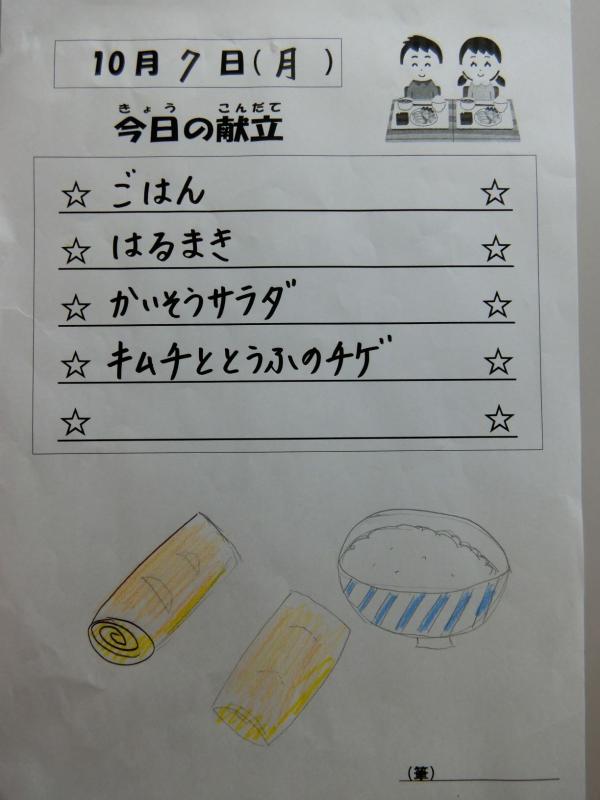 10月7日(月)
きょう こんだて
今日の献立
☆ ごはん ☆
☆ はるまき ☆
☆ かいそうサラダ ☆
☆ キムチととうふのチゲ ☆
☆ ☆
(筆)